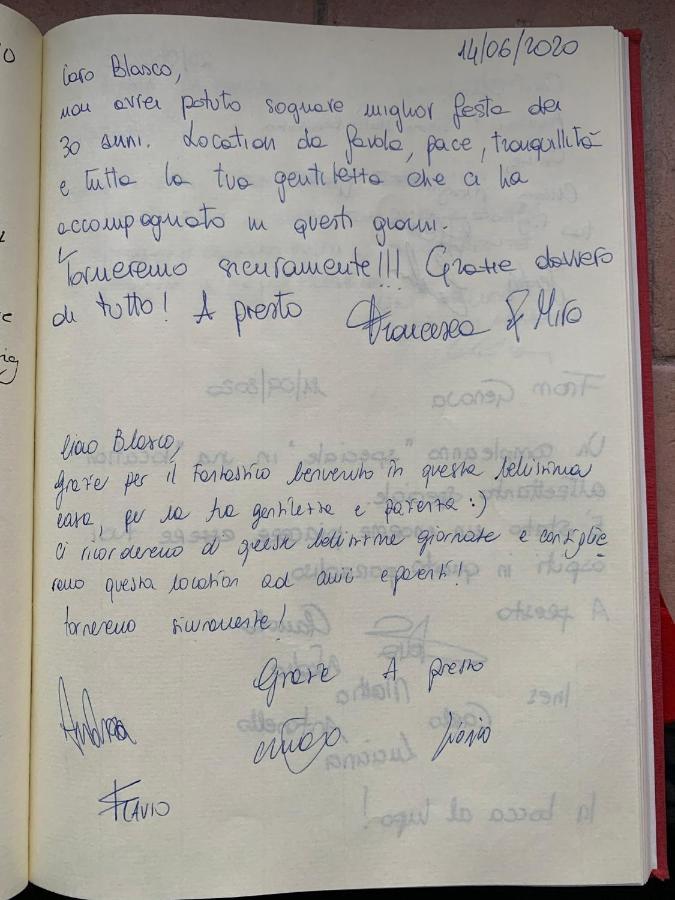 14/06/2020
Caro Blasco,
non avrei potuto sognare miglior festa dei
30 anni. Location da favola, pace, tranquillità
e tutta la tua gentilezza che ci ha
accompagnato in questi giorni.
Torneremo sicuramente!!! Grazie davvero
di tutto! A presto Francesca & Miro
Ciao Blasco,
Grazie per il fantastico benvenuto in questa bellissima
casa, per la tua gentilezza e pazienza :)
Ci ricorderemo di queste bellissime giornate e consiglie
remo questa location ad amici e parenti!
torneremo sicuramente!
Grazie A presto
Andrea
Flavio